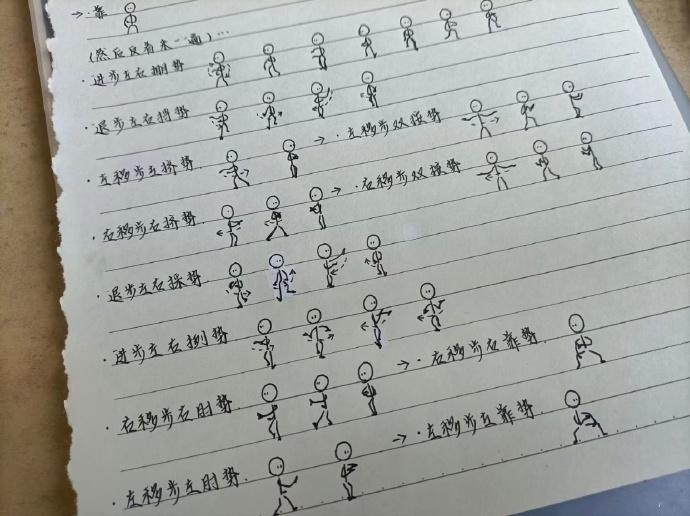 →·靠
(然后反着来一遍)...
·进步左右掤势
·退步左右捋势
·左移步左挤势 →·左移步双按势
·右移步右挤势 →·右移步双按势
·退步左右採势
·进步左右挒势
·右移步右肘势 →·右移步右靠势
·左移步左肘势 →·左移步左靠势